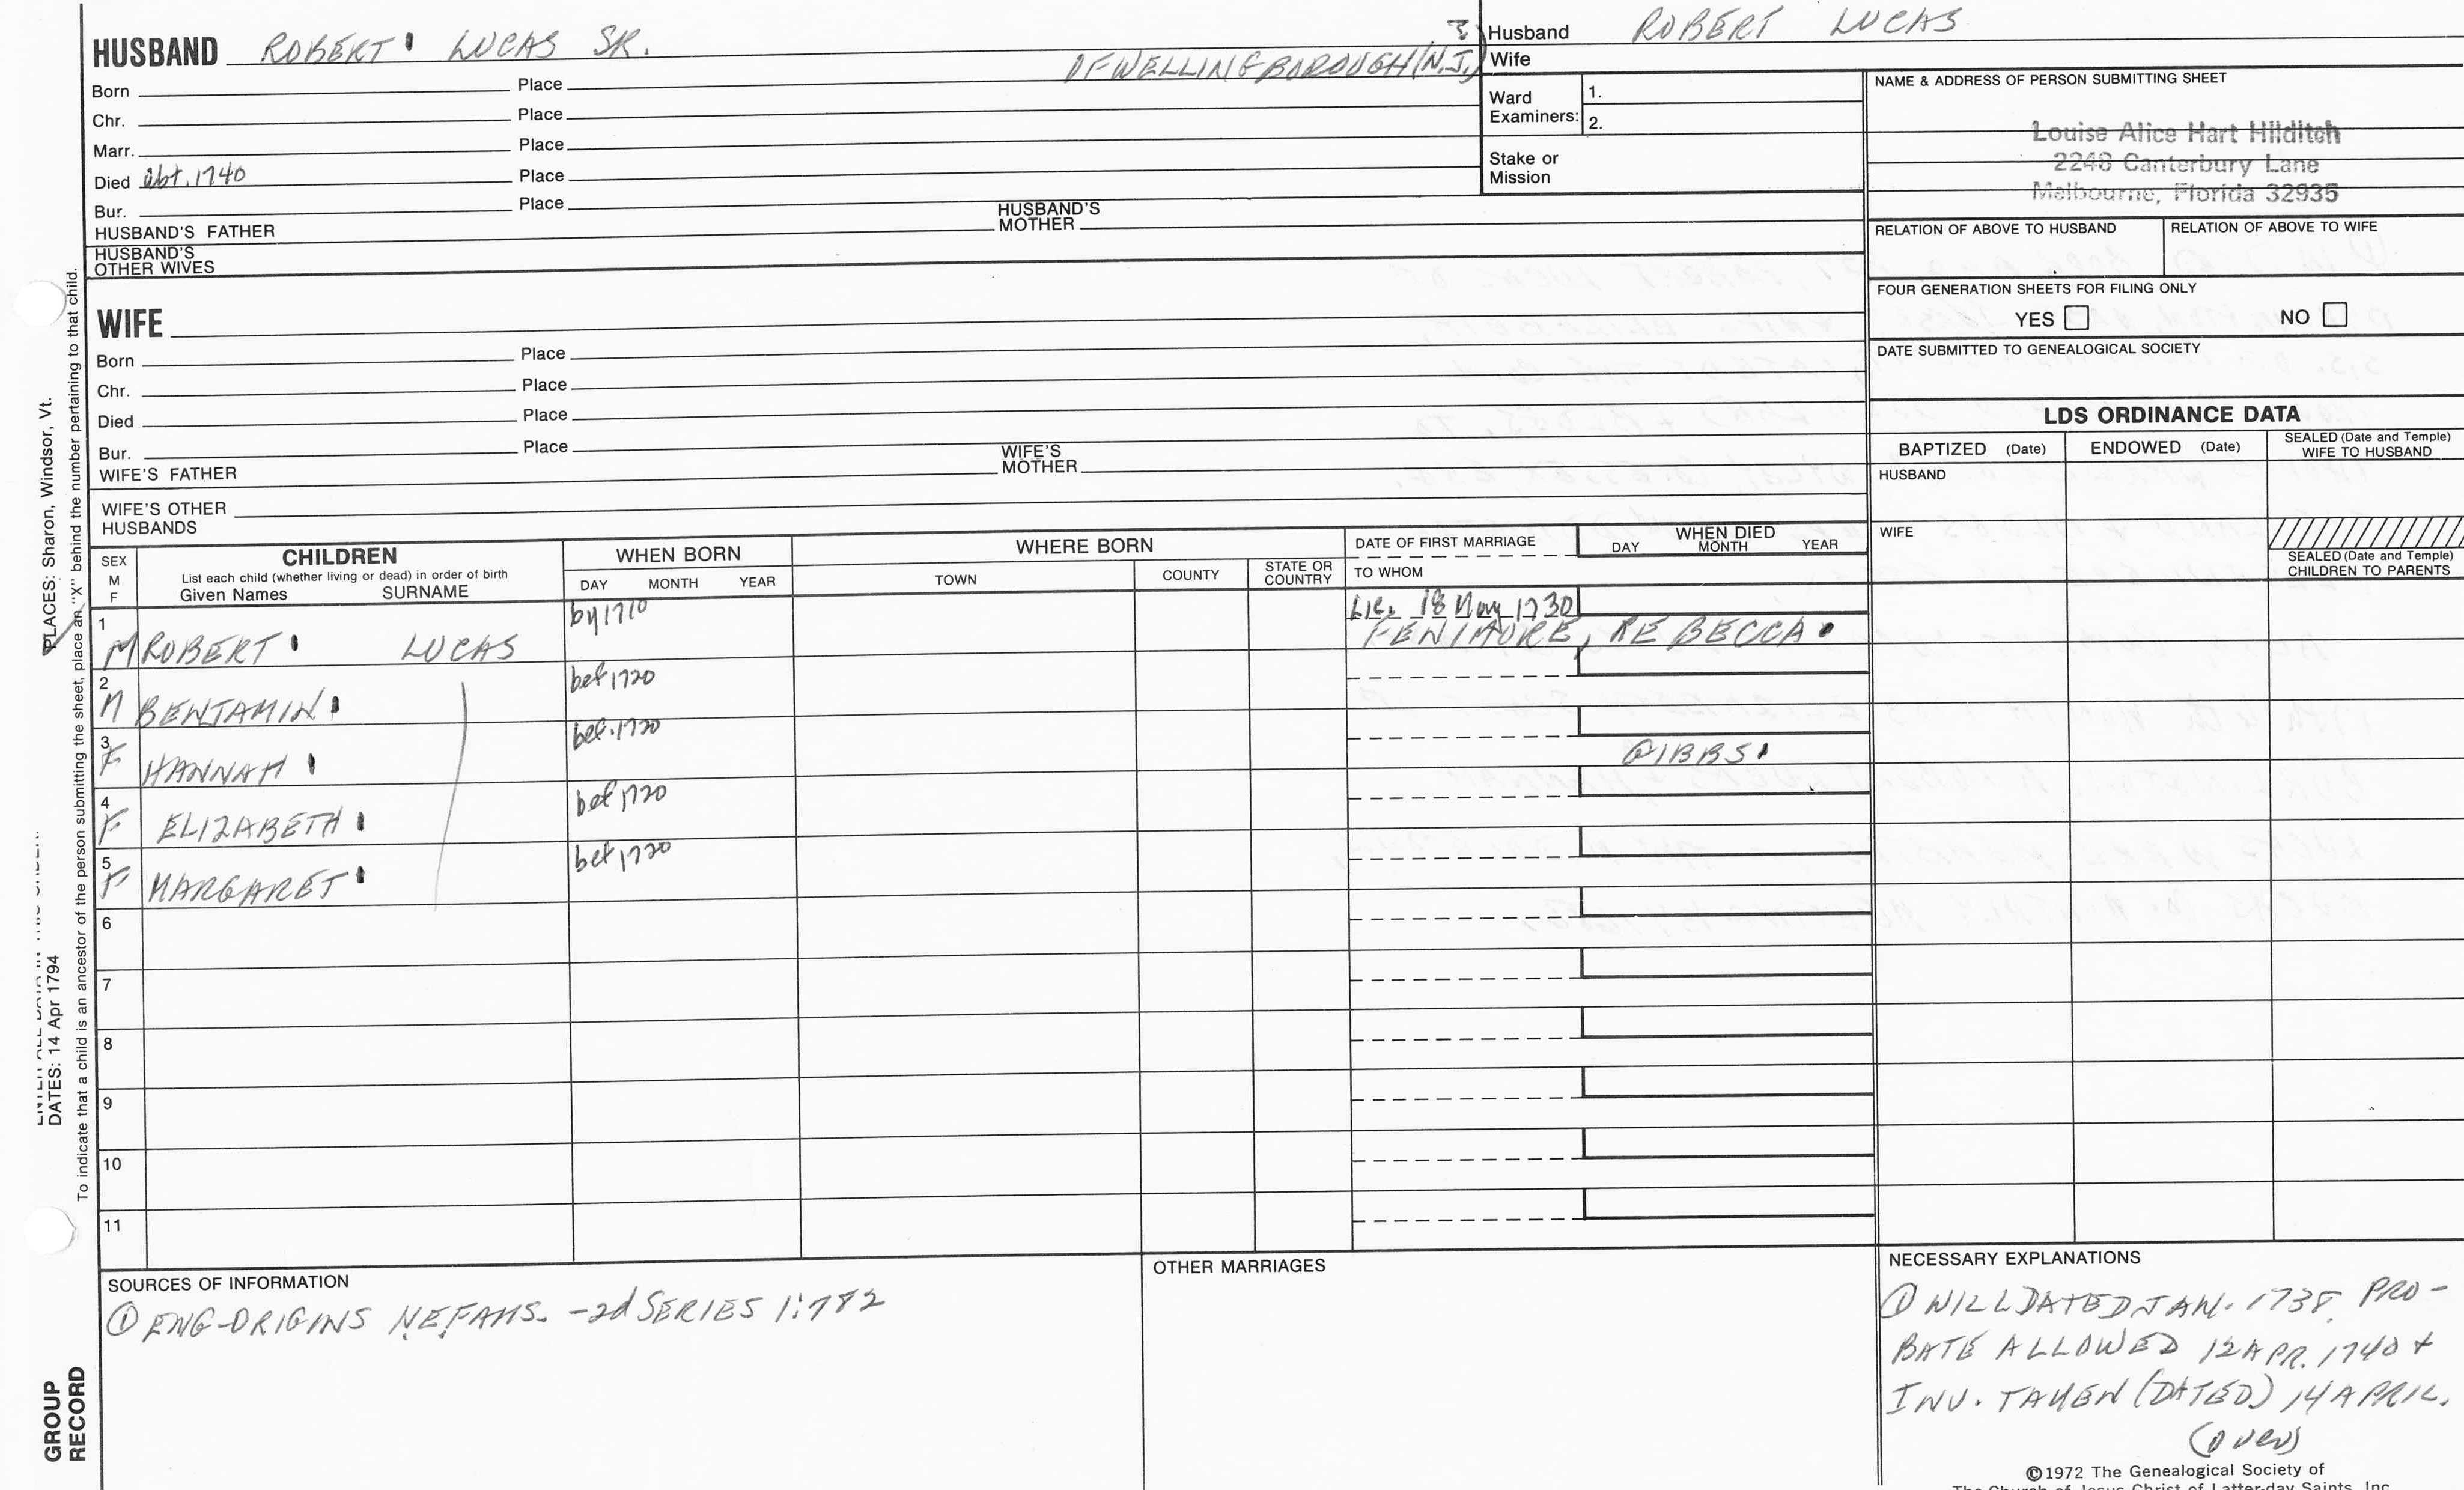 HUSBAND ROBERT LUCAS SR.
OF WELLINGBOROUGH (N.J.)
Born Place
Chr. Place
Marr. Place
Died abt. 1740 Place
Bur. Place
HUSBAND'S FATHER HUSBAND'S MOTHER
HUSBAND'S
OTHER WIVES
Husband ROBERT LUCAS
Wife
Ward
Examiners: 1.
2.
Stake or
Mission
NAME & ADDRESS OF PERSON SUBMITTING SHEET
Louise Alice Hart Hilditch
2248 Canterbury Lane
Melbourne, Florida 32935
RELATION OF ABOVE TO HUSBAND RELATION OF ABOVE TO WIFE
FOUR GENERATION SHEETS FOR FILING ONLY
YES NO
DATE SUBMITTED TO GENEALOGICAL SOCIETY
WIFE
Born Place
Chr. Place
Died Place
Bur. Place
WIFE'S FATHER WIFE'S MOTHER
WIFE'S OTHER
HUSBANDS
LDS ORDINANCE DATA
BAPTIZED (Date) ENDOWED (Date) SEALED (Date and Temple) WIFE TO HUSBAND
HUSBAND
WIFE
SEALED (Date and Temple)
CHILDREN TO PARENTS
SEX
M
F
CHILDREN
List each child (whether living or dead) in order of birth
Given Names SURNAME
WHEN BORN
DAY MONTH YEAR
WHERE BORN
TOWN COUNTY STATE OR COUNTRY
DATE OF FIRST MARRIAGE
TO WHOM
WHEN DIED
DAY MONTH YEAR
1 by 1710 Lic. 18 Nov 1730
M ROBERT LUCAS FENIMORE, REBECCA
2 bef 1720
M BENJAMIN
3 bef. 1720
F HANNAH GIBBS
4 bef 1720
F ELIZABETH
5 bef 1720
F MARGARET
6
7
8
9
10
11
SOURCES OF INFORMATION
① ENG-ORIGINS NEFAMS. -2d SERIES 1:782
OTHER MARRIAGES
NECESSARY EXPLANATIONS
① WILL DATED JAN. 1738, PRO-
BATE ALLOWED 12 APR. 1740 +
INV. TAKEN (DATED) 14 APRIL.
(over)
©1972 The Genealogical Society of
The Church of Jesus Christ of Latter-day Saints, Inc.
PLACES: Sharon, Windsor, Vt.
DATES: 14 Apr 1794
To indicate that a child is an ancestor of the person submitting the sheet, place an "X" behind the number pertaining to that child.
GROUP
RECORD